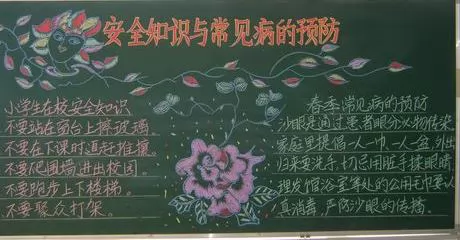 安全知识与常见病的预防
小学生在校安全知识
不要站在窗台上擦玻璃
不要在下课时追赶推攘。
不要爬围墙进出校园。
不要跑步上下楼梯。
不要聚众打架。
春季常见病的预防
沙眼是通过患者眼分必物传染。
家庭里提倡一人一巾,一人一盆,外出
归来要洗手,切忌用脏手揉眼睛
理发馆浴室等处的公用毛巾要认
真消毒,严防沙眼的传播。